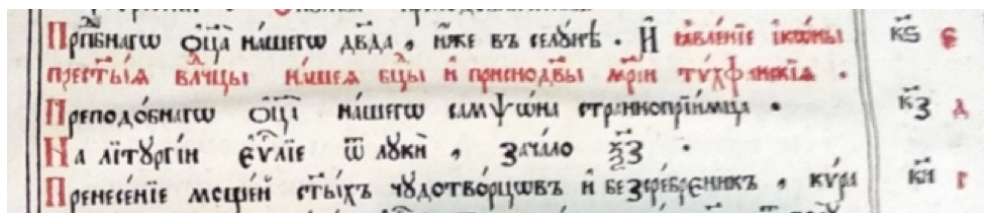 Прпⷣбнагѡ ѻц҃а̀ на́шегѡ дв҃да, и҆́же въ селꙋ́нѣ. И҆ ꙗ҆вле́нїе і҆кѡ́ны к҃ѕ є
прест҃ы́ѧ влⷣчцы на́шеѧ бцⷣы и҆ приснодв҃ы мр҃і́и ти́хфинскїѧ.
Преподо́бнагѡ ѻц҃а̀ на́шегѡ самѱѡ́на страннопрїи́мца. к҃з д
На лїтꙋргі́и є҆ѵⷢ҇лїе ѿ лꙋкѝ, зача́ло р҃ѕ.
Пренесе́нїе моще́й ст҃ы́хъ чꙋдотво́рцѡвъ и҆ безсре́бреникъ, кѵ́ра к҃и г